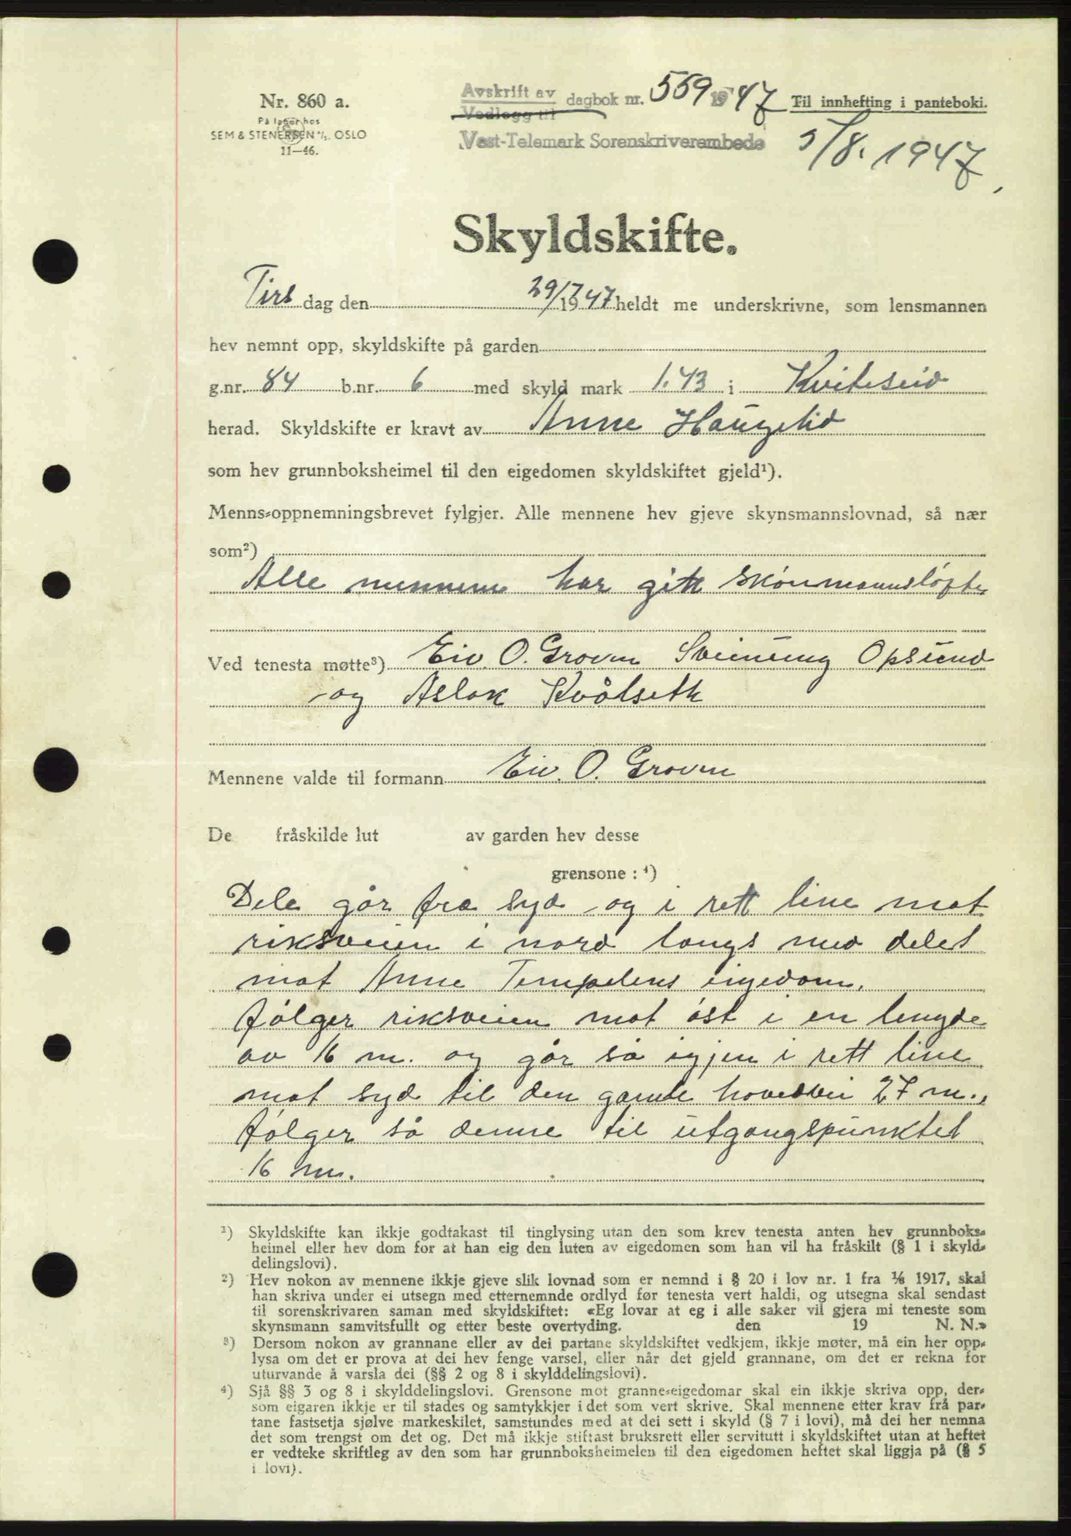 Nr. 860 a.
På lager hos
SEM & STENERSEN A/S, OSLO
11—46.
Avskrift av
Vedlegg til
dagbok nr. 559 1947 Til innhefting i panteboki.
Vest-Telemark Sorenskriverembede
5/8. 1947.
Skyldskifte.
Tirs dag den 29/7 1947 heldt me underskrivne, som lensmannen
hev nemnt opp, skyldskifte på garden
g.nr. 84 b.nr. 6 med skyld mark 1.43 i Kviteseid
herad. Skyldskifte er kravt av Anne Haugelid
som hev grunnboksheimel til den eigedomen skyldskiftet gjeld¹).
Menns-oppnemningsbrevet fylgjer. Alle mennene hev gjeve skynsmannslovnad, så nær
som²)
Alle mennene har gitt skønnsmannsløfte
Ved tenesta møtte³) Eiv. O. Groven Sveinung Opsund
og Aslak Kvålseth
Mennene valde til formann Eiv. O. Groven
De fråskilde lut av garden hev desse
grensone : ⁴)
Dele går fra syd og i rett line mot
riksveien i nord langs med delet
mot Anne Tempelens eigedom.
følger riksveien mot øst i en lengde
av 16 m. og går så igjen i rett line
mot syd til den gamle hovedvei 27 m.,
følger så denne til utgangspunktet
16 m.
¹) Skyldskifte kan ikkje godtakast til tinglysing utan den som krev tenesta anten hev grunnboks-
heimel eller hev dom for at han eig den luten av eigedomen som han vil ha fråskilt (§ 1 i skyld-
delingslovi).
²) Hev nokon av mennene ikkje gjeve slik lovnad som er nemnd i § 20 i lov nr. 1 fra 1/6 1917, skal
han skriva under ei utsegn med etternemnde ordlyd før tenesta vert haldi, og utsegna skal sendast
til sorenskrivaren saman med skyldskiftet: «Eg lovar at eg i alle saker vil gjera mi teneste som
skynsmann samvitsfullt og etter beste overtyding. den 19 N. N.»
³) Dersom nokon av grannane eller av dei partane skyldskiftet vedkjem, ikkje møter, må ein her opp-
lysa om det er prova at dei hev fenge varsel, eller når det gjeld grannane, om det er rekna for
uturvande å varsla dei (§§ 2 og 8 i skylddelingslovi).
⁴) Sjå §§ 3 og 8 i skylddelingslovi. Grensone mot granne-eigedomar skal ein ikkje skriva opp, der-
som eigaren ikkje er til stades og samtykkjer i det som vert skrive. Skal mennene etter krav frå par-
tane fastsetja sjølve markeskilet, samstundes med at dei sett i skyld (§ 7 i lovi), må dei her nemna
det som trengst om det og. Det må ikkje stiftast bruksrett eller servitutt i skyldskiftet utan at heftet
er vedteke skriftleg av den som har grunnboksheimelen til den eigedomen heftet skal liggja på (§ 5
i lovi).